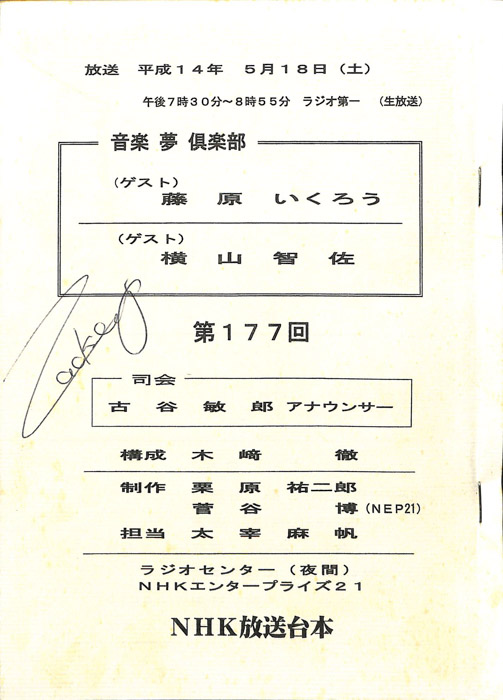 放送 平成14年 5月18日(土)
午後7時30分~8時55分 ラジオ第一 (生放送)
音楽 夢 倶楽部
(ゲスト)
藤原いくろう
(ゲスト)
横山智佐
第177回
司会
古谷敏郎 アナウンサー
構成 木﨑徹
制作 栗原祐二郎
菅谷博(NEP21)
担当 太宰麻帆
ラジオセンター(夜間)
NHKエンタープライズ21
NHK放送台本